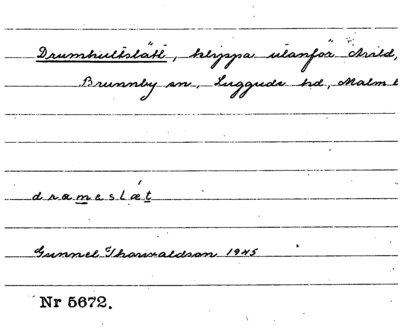 Drumhultslätt, klippa utanför Arild,
Brunnby sn, Luggude hd, Malm
drameslæt
Gunnel Thorwaldson 1945
Nr 5672.